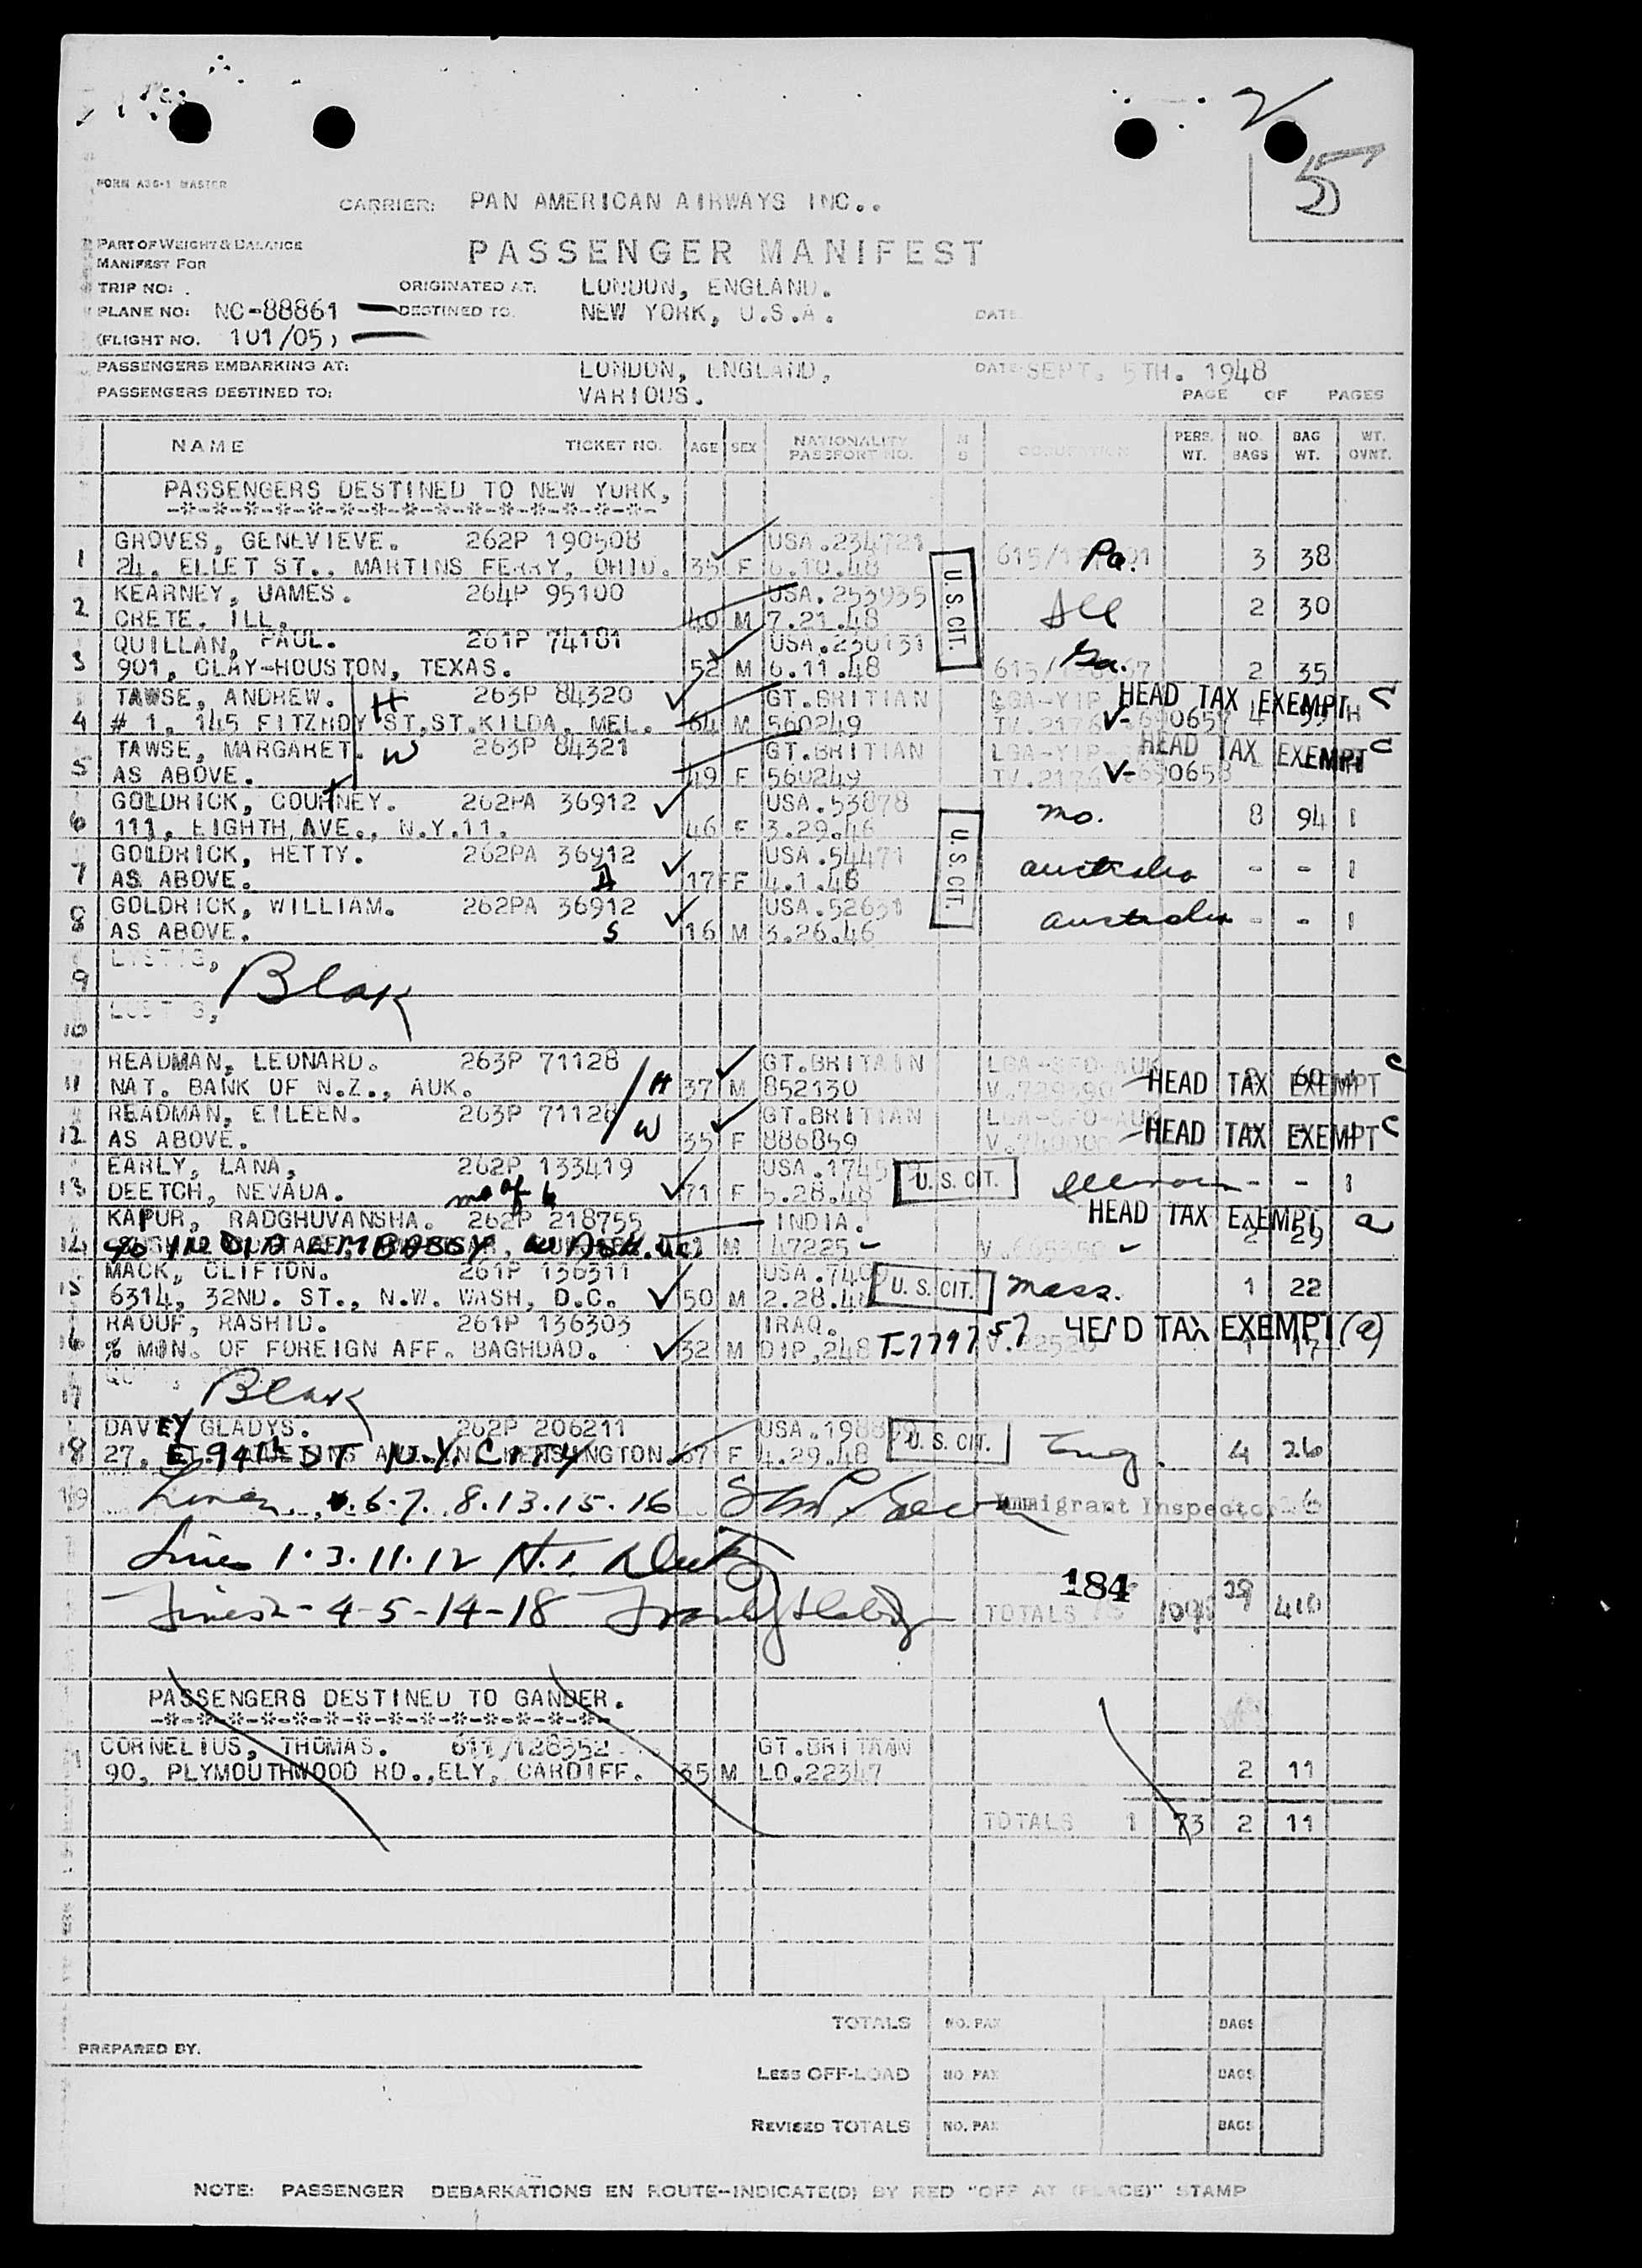 2
5
FORM A36-1 MASTER
CARRIER: PAN AMERICAN AIRWAYS INC..
PART OF WEIGHT & BALANCE
MANIFEST FOR
PASSENGER MANIFEST
TRIP NO: ORIGINATED AT: LONDON, ENGLAND.
PLANE NO: NC-88861 DESTINED TO. NEW YORK, U.S.A. DATE
(FLIGHT NO. 101/05)
PASSENGERS EMBARKING AT: LONDON, ENGLAND, DATE SEPT. 5TH. 1948
PASSENGERS DESTINED TO: VARIOUS. PAGE OF PAGES
NAME TICKET NO. AGE SEX NATIONALITY PASSPORT NO. OCCUPATION PERS. WT. NO. BAGS BAG WT. WT. OVNT.
PASSENGERS DESTINED TO NEW YORK,
-*-*-*-*-*-*-*-*-*-*-*-*-*-*-*-
GROVES, GENEVIEVE. 262P 190508 USA.234721
1 24. ELLET ST., MARTINS FERRY, OHIO. 35 F 6.10.48 Pa. 3 38
KEARNEY, JAMES. 264P 95100 USA.253935
2 CRETE. ILL. 40 M 7.21.48 U.S.CIT. Ill 2 30
QUILLAN, PAUL. 261P 74181 USA.230131
3 901, CLAY-HOUSTON, TEXAS. 52 M 6.11.48 Ga. 2 35
TAWSE, ANDREW. H 263P 84320 GT.BRITIAN LGA-YIP HEAD TAX EXEMPT C
4 # 1, 145 FITZROY ST,ST.KILDA, MEL. 64 M 560249 TV.2176 V-690657 4
TAWSE, MARGARET. W 263P 84321 GT.BRITIAN LGA-YIP HEAD TAX EXEMPT C
5 AS ABOVE. 49 F 560249 TV.2176 V-690658
GOLDRICK, COURTNEY. 262PA 36912 USA.53878
6 111, EIGHTH AVE., N.Y.11. 46 F 3.29.46 U.S.CIT. Mo. 8 94 1
GOLDRICK, HETTY. 262PA 36912 USA.54471
7 AS ABOVE. 17 F 4.1.46 australia - - 1
GOLDRICK, WILLIAM. 262PA 36912 USA.52631
8 AS ABOVE. S 16 M 3.26.46 australia - - 1
9 Blak
10
READMAN, LEONARD. 263P 71128 GT.BRITAIN LGA-SFO-AUK C
11 NAT. BANK OF N.Z., AUK. H 37 M 852130 HEAD TAX EXEMPT
READMAN, EILEEN. 263P 71128 GT.BRITIAN LGA-SFO-AUK
12 AS ABOVE. W 35 F 886859 HEAD TAX EXEMPT C
EARLY, LANA, 262P 133419 USA.1745
13 DEETCH, NEVADA. 71 F 5.28.48 U.S.CIT. Illinois - - 1
KAPUR, RADGHUVANSHA. 262P 218755 INDIA. HEAD TAX EXEMPT a
14 c/o INDIA EMBASSY WASH. M 47225 2 29
MACK, CLIFTON. 261P 136311 USA.740
15 6314, 32ND. ST., N.W. WASH, D.C. 50 M 2.28.4 U.S.CIT. Mass. 1 22
RAOUF, RASHID. 261P 136303 IRAQ. HEAD TAX EXEMPT (a)
16 % MIN. OF FOREIGN AFF. BAGHDAD. 32 M DIP,248 T-779757 1 17
17 Blak
DAVEY GLADYS. 262P 206211 USA.1988
18 27. E. 94th ST N.Y. CITY 67 F 4.29.48 U.S.CIT. Eng. 4 26
19 Lines 6-7. 8.13.15.16 Immigrant Inspector
Lines 1.3.11.12
Lines 2-4-5-14-18
184
TOTALS 29 410
PASSENGERS DESTINED TO GANDER.
-*-*-*-*-*-*-*-*-*-*-*-*-*-*-
CORNELIUS, THOMAS. 611/128352 GT.BRITIAN
1 90, PLYMOUTHWOOD RD.,ELY, CARDIFF. 35 M LO.22347 2 11
TOTALS 1 73 2 11
TOTALS NO. PAX BAGS
PREPARED BY.
LESS OFF-LOAD NO PAX BAGS
REVISED TOTALS NO. PAX BAGS
NOTE: PASSENGER DEBARKATIONS EN ROUTE-INDICATE(D) BY RED "OFF AT (PLACE)" STAMP